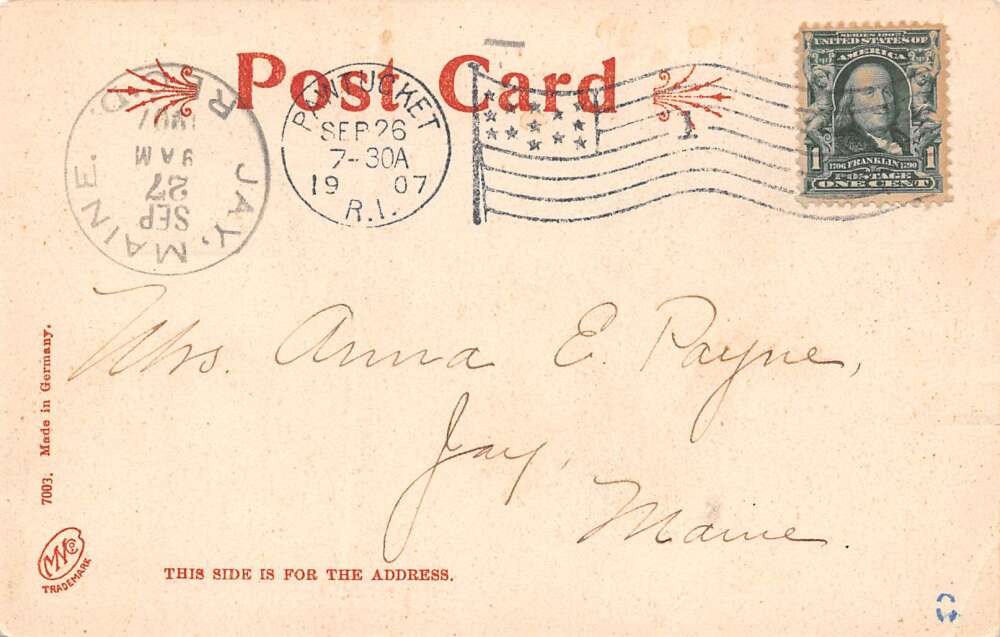 Post Card
PAWTUCKET
SEP 26
7-30A
19 07
R.I.
1
SERIES 1902
UNITED STATES OF
AMERICA
1706 FRANKLIN 1790
1 1
POSTAGE
ONE CENT
REC'D.
1907
9 AM
27
SEP
JAY, MAINE.
Mrs. Anna E. Payne,
Jay,
Maine
7003. Made in Germany.
MN Co
TRADEMARK
THIS SIDE IS FOR THE ADDRESS.